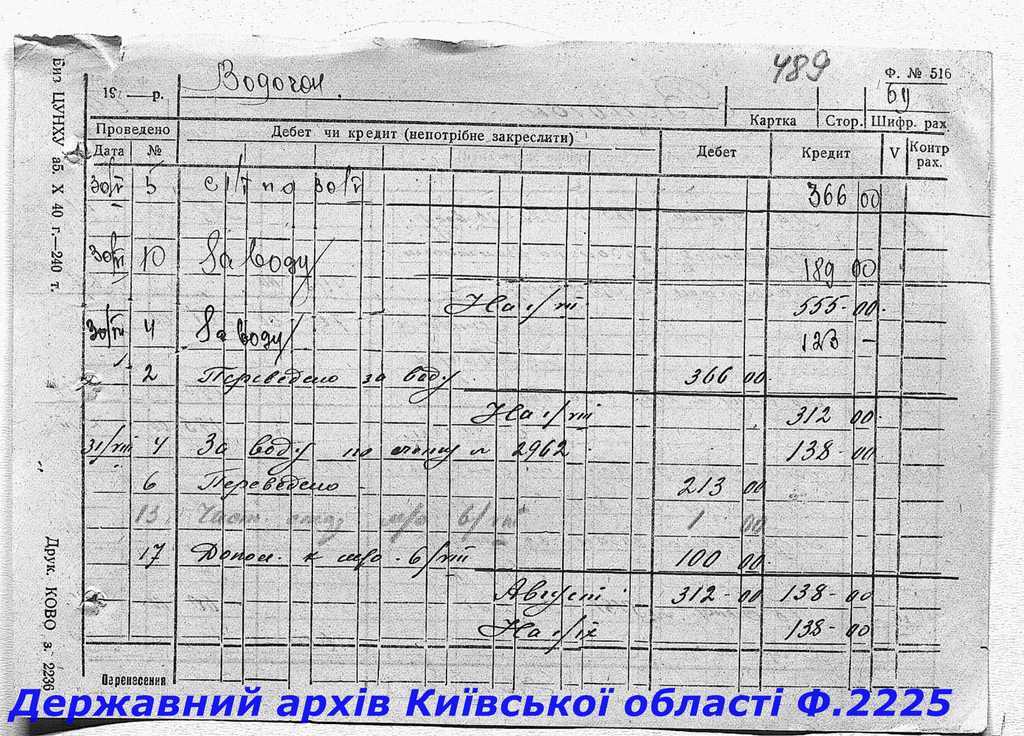 489
Ф. № 516
Водогон.
19 — р.
Картка Стор. Шифр. рах.
Проведено Дебет чи кредит (непотрібне закреслити) Дебет Кредит V Контр рах.
Дата №
30/V 5 с/г по 30/V 366 00
30/VI 10 За воду 189 00
На 1/VII 555-00
30/VII 4 За воду 123 —
2 Переведено за воду 366 00
На 1/VIII 312 00
31/VIII 4 За воду по счету № 2962 138-00
6 Переведено 213 00
13 Част. м/о 6/VIII 1 00
17 Допол. к м/о. 6/VIII 100 00
Август 312-00 138-00
На 1/IX 138-00
Перенесення
Биз. ЦУНХУ аб. Х 40 г.—240 т.
Друк. КОВО з. 2236
Державний архів Київської області Ф.2225